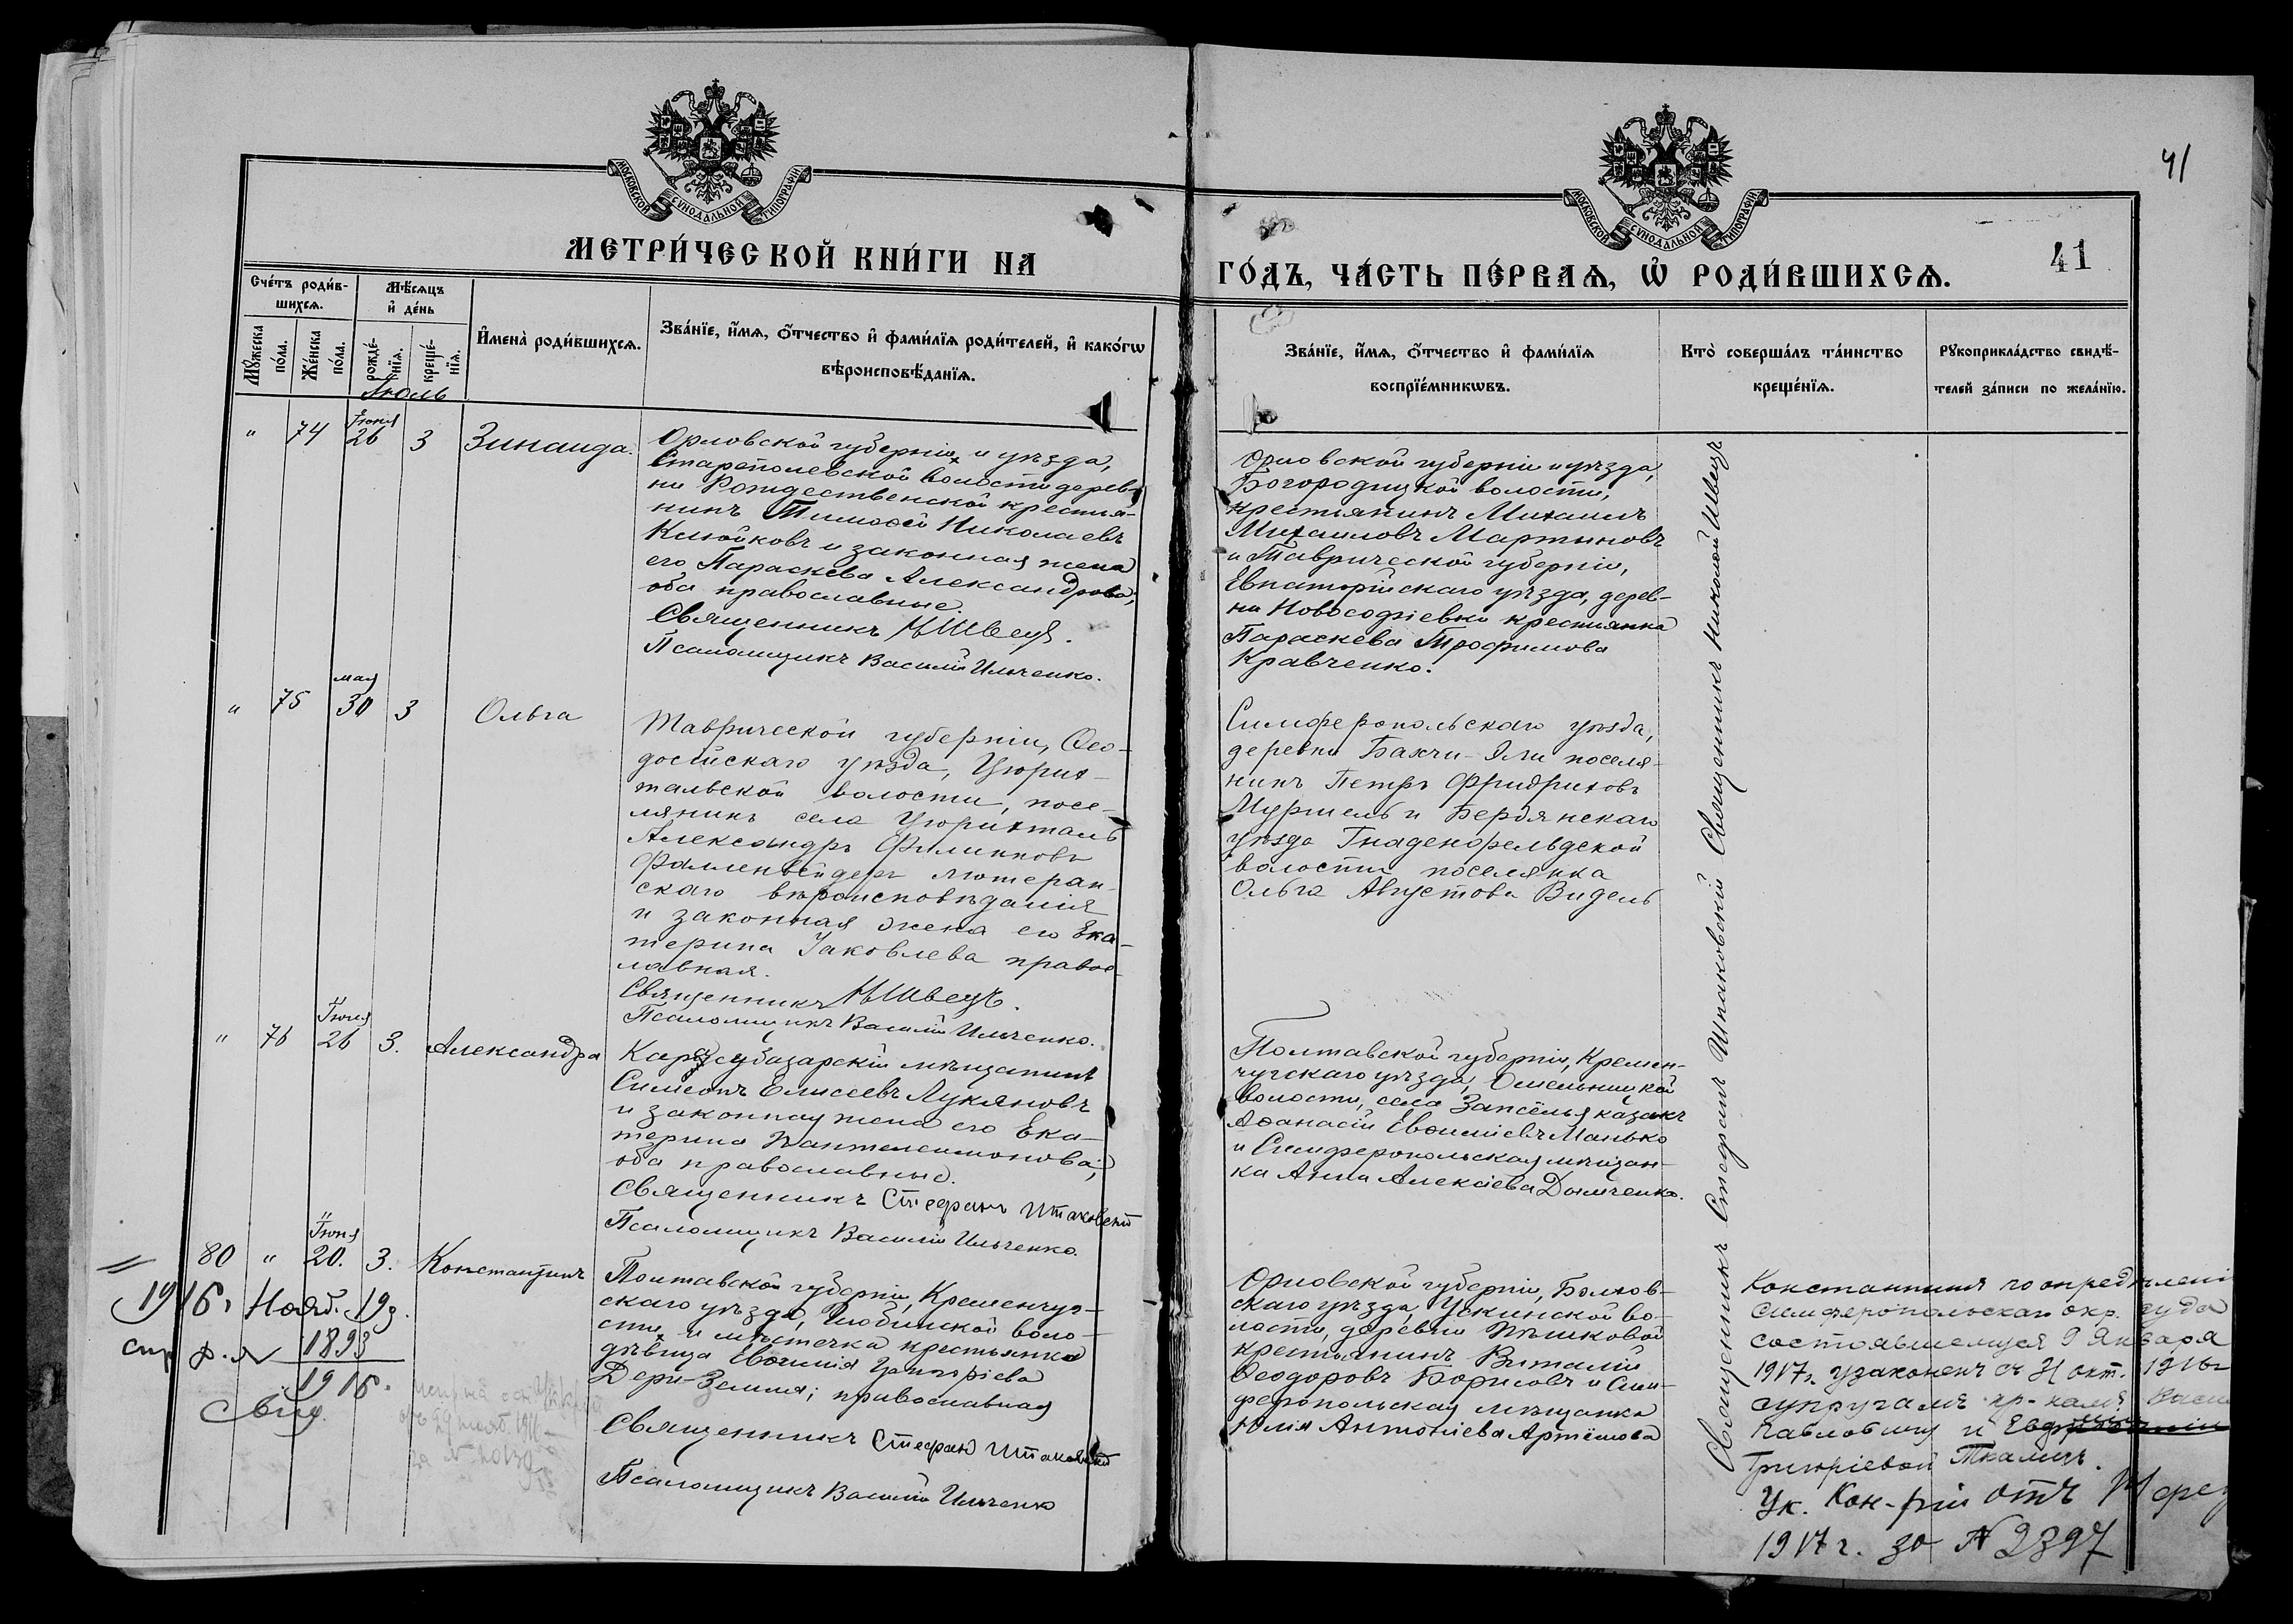 41
МОСКОВСКОЙ СѴНОДАЛЬНОЙ ТИПОГРАФІИ
МОСКОВСКОЙ СѴНОДАЛЬНОЙ ТИПОГРАФІИ
МЕТРИ́ЧЕСКОЙ КНИ́ГИ НА
ГО́ДЪ, ЧА́СТЬ ПЕ́РВАѦ, Ѡ҆ РОДИ́ВШИХСѦ.
41
Сче́тъ роди́в-
шихсѧ.
Мѣ́сѧцъ
и҆ де́нь
Мꙋ́жеска
по́ла.
Же́нска
по́ла.
рожде́-
нїѧ.
креще́-
нїѧ.
И҆мена̀ роди́вшихсѧ.
Зва́нїе, и҆́мѧ, ѻ҆́тчество и҆ фами́лїѧ роди́телей, и҆ како́гѡ
вѣроисповѣ́данїѧ.
Зва́нїе, и҆́мѧ, ѻ҆́тчество и҆ фами́лїѧ
воспрїе́мникѡвъ.
Кто̀ соверша́лъ та́инство
креще́нїѧ.
Рꙋкоприкла́дство свидѣ́-
телей за́писи по жела́нїю.
Іюль
" 74 Іюня 26 3 Зинаида.
Орловской губерніи и уѣзда,
волости дерев-
ни Рождественской крестья-
нинъ Тимоѳей Николаевъ
и законная жена
его Параскева Александрова,
оба православные.
Священникъ Н Швецъ.
Псаломщикъ Василій Ильченко.
Орловской губерніи и уѣзда,
Богородицкой волости,
крестьянинъ Михаилъ
Михаиловъ Мартыновъ
и Таврической губерніи,
Евпаторійскаго уѣзда, дерев-
ни Новософіевки крестьянка
Параскева Трофимова
Кравченко.
" 75 мая 30 3 Ольга
Таврической губерніи, Ѳео-
досійскаго уѣзда, Цюрих-
тальской волости, посе-
лянинъ села Цюрихталь
Александръ Филипповъ
Фалленвейдеръ лютеран-
скаго вѣроисповѣданія
и законная жена его Ека-
терина Іаковлева правос-
лавная.
Священникъ Н Швецъ.
Псаломщикъ Василій Ильченко.
Симферопольскаго уѣзда,
деревни Бахчи-Эли поселя-
нинъ Петръ Фридриховъ
и Бердянскаго
уѣзда Гнаденфельдской
волости поселянка
Ольга Августова Видель
" 76 Іюня 26 3. Александра
Карасубазарскій мѣщанинъ
Симеонъ Елисеевъ Лукяновъ
и законная жена его Ека-
терина Пантелеимонова,
оба православные.
Священникъ Стефанъ Шпаковскій
Псаломщикъ Василій Ильченко.
Полтавской губерніи, Кремен-
чугскаго уѣзда, Омельницкой
волости, села Запсёлья казакъ
Аѳанасій Евѳиміевъ Манько
и Симферопольская мѣщан-
ка Анна Алексіева Дымченко.
80 " Іюня 20. 3. Константинъ
Полтавской губерніи, Кременчуг-
скаго уѣзда, Глобинской воло-
сти и мѣстечка крестьянка
дѣвица Евѳимія Григоріева
Дери-Земля; православная
Священникъ Стефанъ Шпаковскій
Псаломщикъ Василій Ильченко
Орловской губерніи, Болхов-
скаго уѣзда, во-
лости, деревни Пѣшковой
крестьянинъ Виталій
Ѳеодоровъ Борисовъ и Сим-
феропольская мѣщанка
Юлія Антоніева Артёмова
1916 г. Нояб. 19 д.
1893
1916.
Свид.
Священникъ Стефанъ Шпаковскій Священникъ Николай Швецъ
Константинъ по опредѣлені
Симферопольскаго окр. суда
состоявшемуся 9 Января
1917 г. узаконенъ съ окт. 1916 г
супругамъ
Павловичу и
Григоріевой Ткаличъ.
Ук. Кон-ріи отъ
1917 г. за № 2397